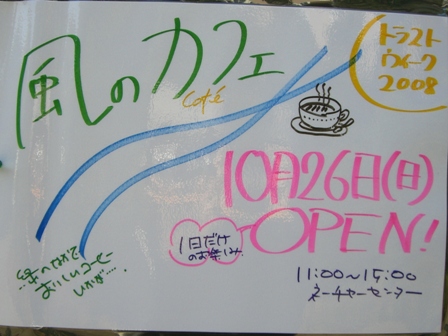 風のカフェ
Café
トラスト
ウィーク
2008
10月26日(日)
OPEN!
1日だけ
のお楽しみ
11:00~15:00
ネーチャーセンター
緑のなかで
おいしいコーヒー
いかが....